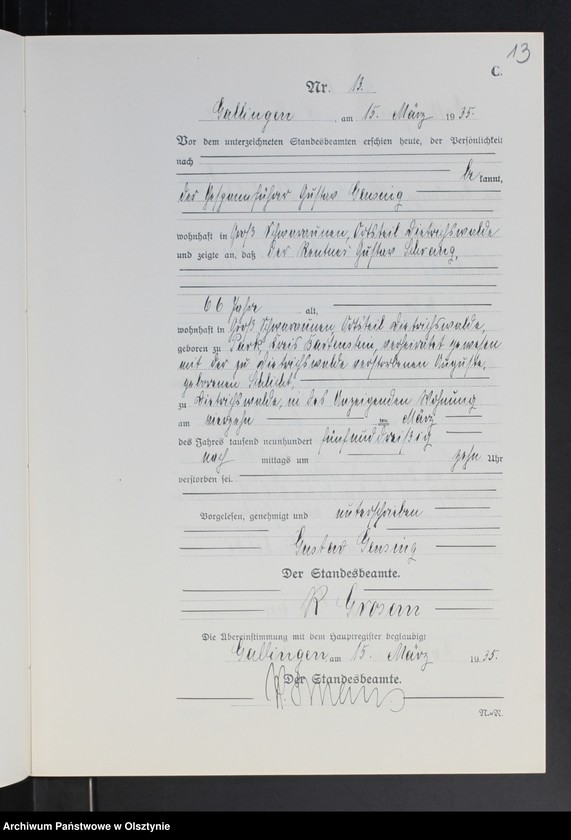 13
C.
Nr. 13.
Gallingen, am 15. März 1935.
Vor dem unterzeichneten Standesbeamten erschien heute, der Persönlichkeit
nach
be kannt,
der Gespannführer Gustav Gensing
wohnhaft in Groß Schwaraunen, Ortsteil Dietrichswalde
und zeigte an, daß der Rentner Gustav
66 Jahre alt,
wohnhaft in Groß Schwaraunen, Ortsteil Dietrichswalde,
geboren zu Park, Kreis Bartenstein, verheiratet gewesen
mit der zu Dietrichswalde verstorbenen Auguste,
geborenen Schlicht,
zu Dietrichswalde, in des Anzeigenden Wohnung
am vierzehn ten März
des Jahres tausend neunhundert fünfunddreißig
nach mittags um zehn Uhr
verstorben sei.
Vorgelesen, genehmigt und unterschrieben
Gustav Gensing
Der Standesbeamte.
R
Die Übereinstimmung mit dem Hauptregister beglaubigt
Gallingen am 15. März 1935.
Der Standesbeamte.
Archiwum Państwowe w Olsztynie